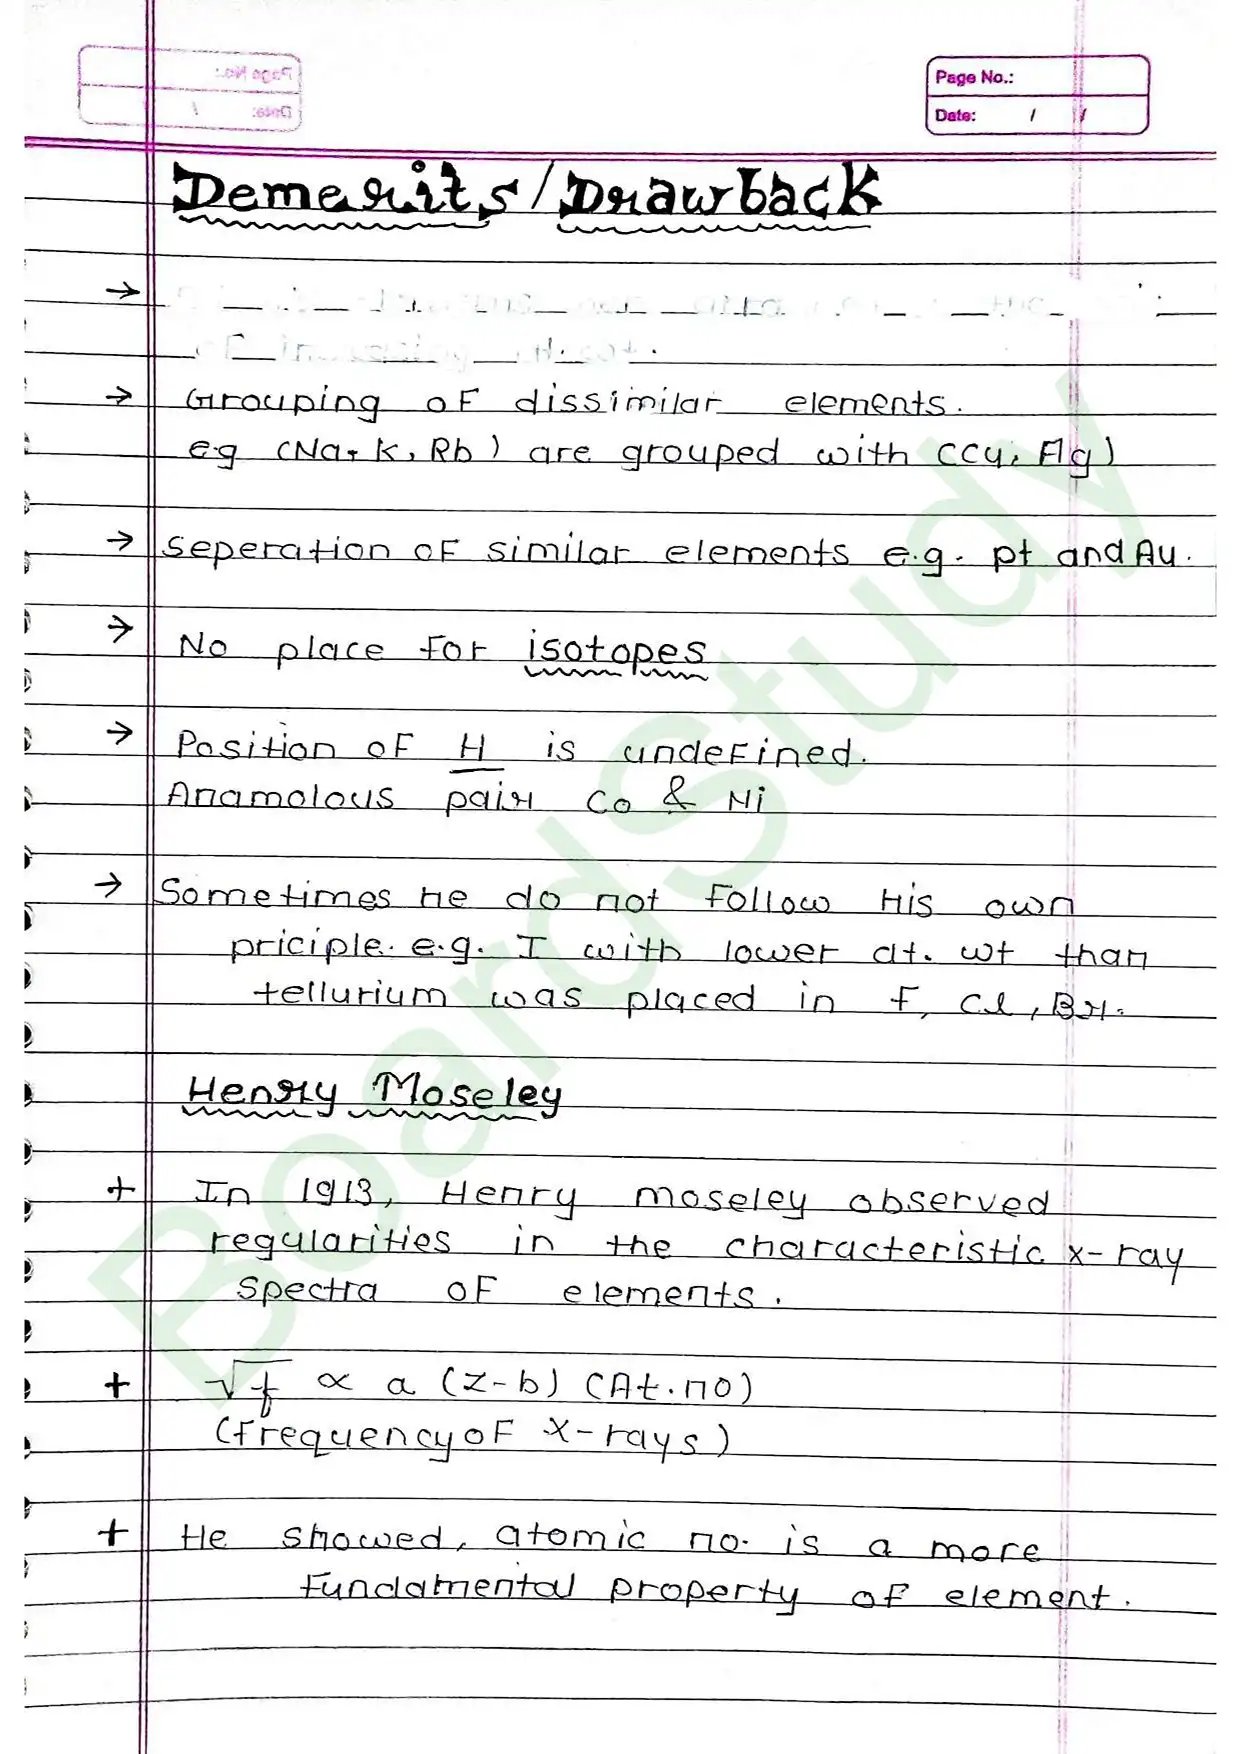 Page No.:
Date: / /
Demerits/Drawback
→
→ Grouping of dissimilar elements.
e.g (Na, K, Rb) are grouped with (Cu, Ag)
→ Seperation of similar elements e.g. pt and Au.
→ No place for isotopes
→ Position of H is undefined.
Anamolous pair Co & Ni
→ Sometimes he do not follow His own
priciple. e.g. I with lower at. wt than
tellurium was placed in F, Cl, Br.
Henry Moseley
+ In 1913, Henry moseley observed
regularities in the characteristic x-ray
Spectra of elements.
+ √f ∝ a (Z-b) (At.no)
(frequency of X-rays)
+ He showed, atomic no. is a more
fundamental property of element.
BoardStudy